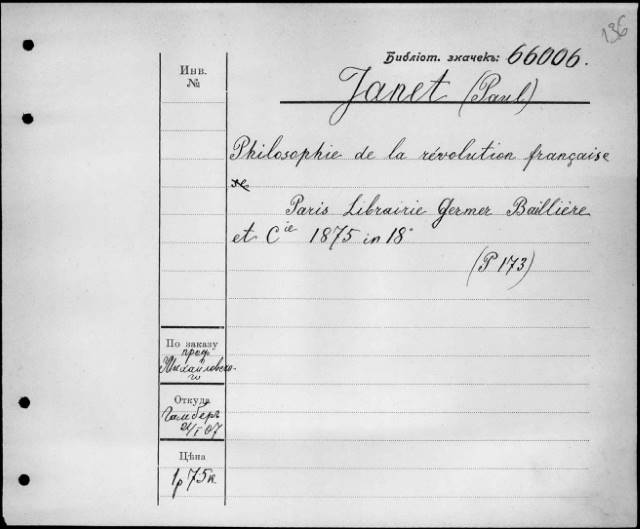 136
Библіот. значекъ: 66006.
Инв.
№
Janet (Paul)
Philosophie de la révolution française
se
Paris Librairie Germer Baillière
et Cie 1875 in 18°
(P 173)
По заказу
проф
Михайловско-
го
Откуда
Гамберъ
24/I 07
Цѣна
1р 75к